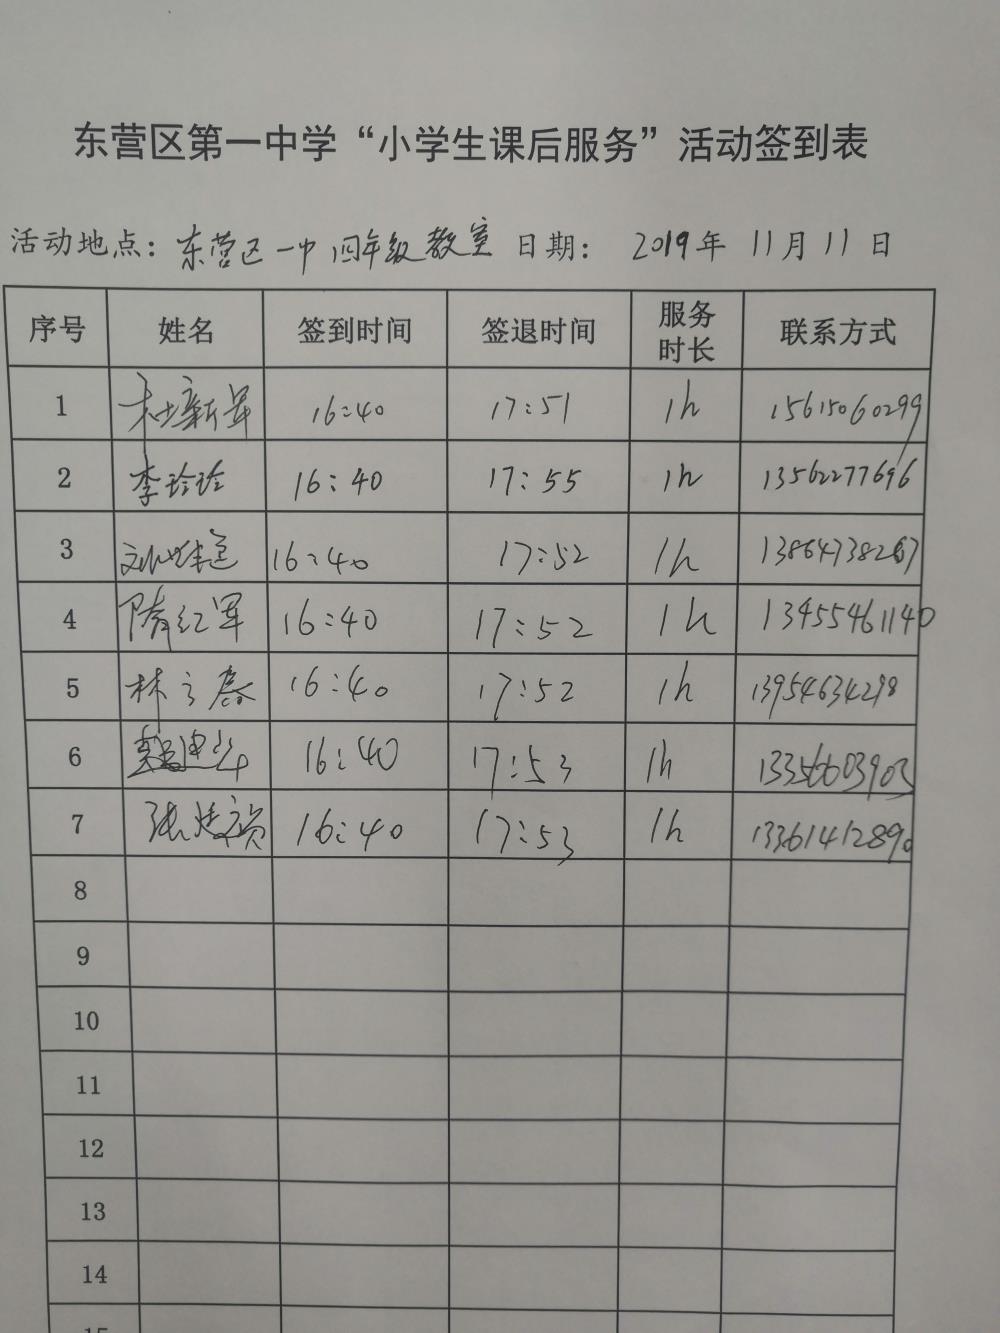 东营区第一中学“小学生课后服务”活动签到表
活动地点：东营区一中四年级教室 日期： 2019年 11月11日
序号 姓名 签到时间 签退时间 服务时长 联系方式
1 16:40 17:51 1h 15615060299
2 李玲玲 16:40 17:55 1h 13562277696
3 16:40 17:52 1h 13864738267
4 隋红军 16:40 17:52 1h 13455461140
5 林之春 16:40 17:52 1h 13954634298
6 16:40 17:53 1h
7 16:40 17:53 1h 13361412890
8
9
10
11
12
13
14
15